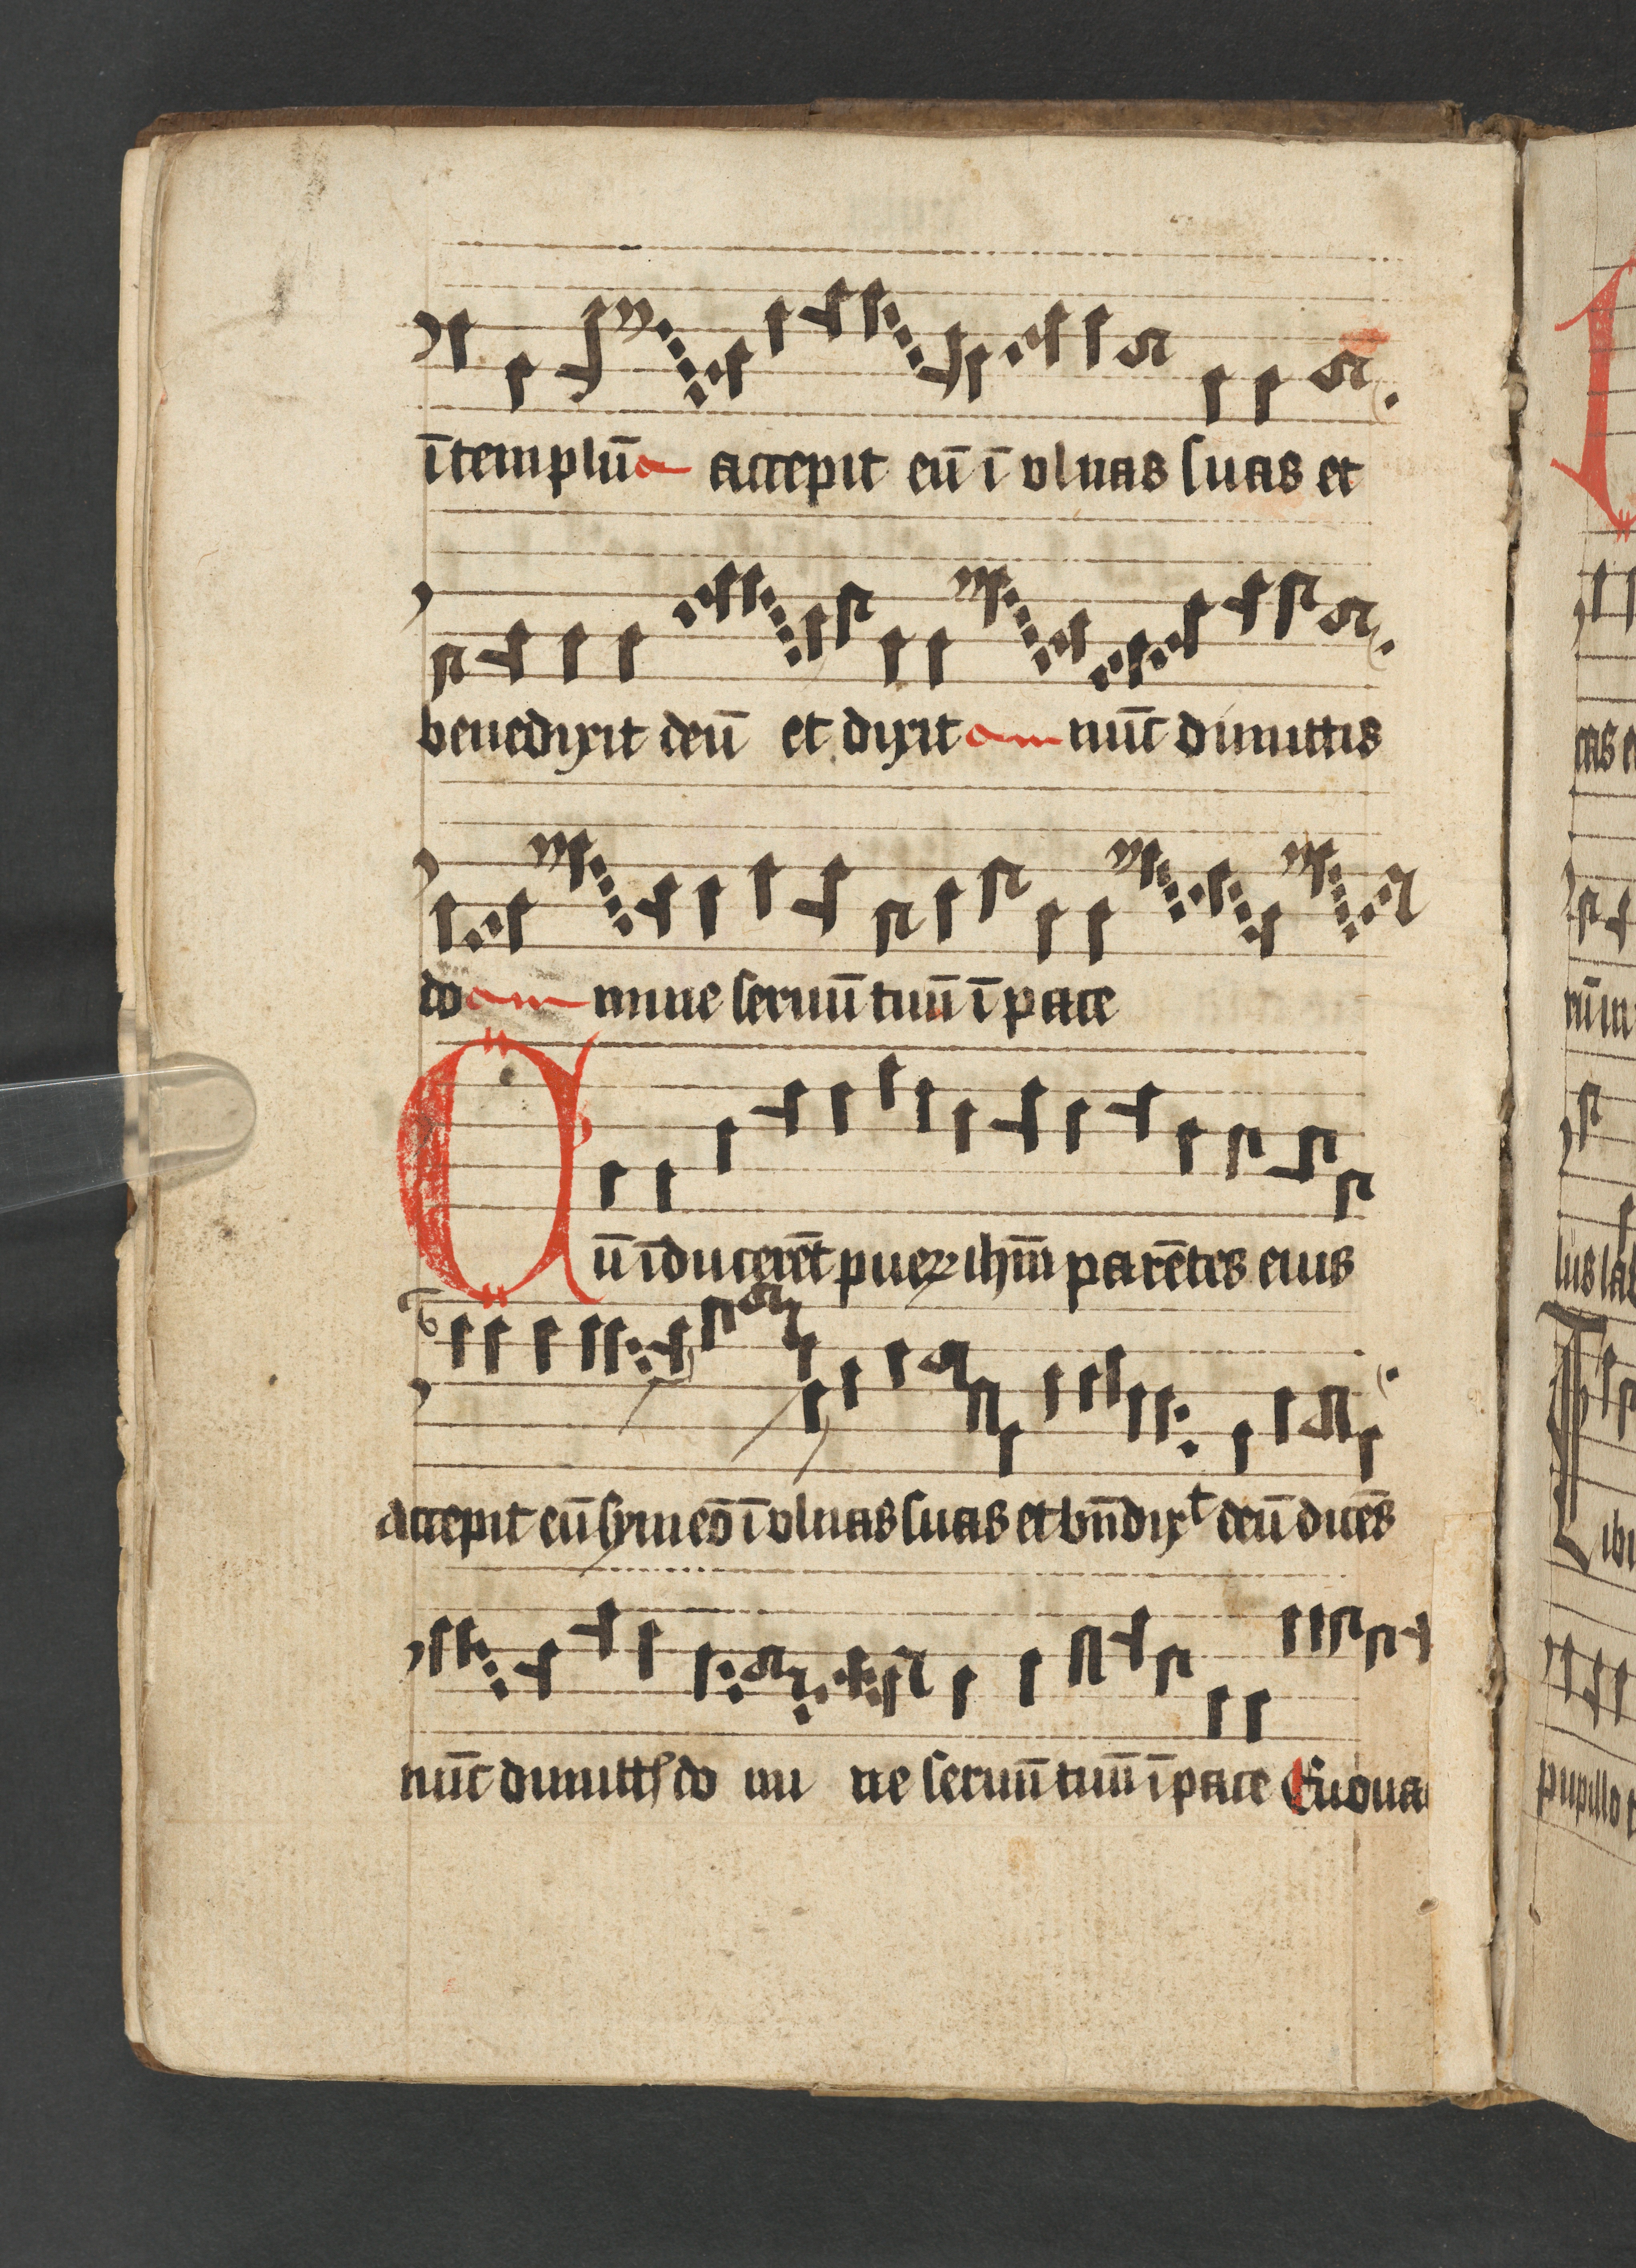 ī templū a accepit eū ī vlnas suas et
benedixit deū et dixit am nūc dimittis
do am mine seruū tuū ī pace
Cū īducerēt pueꝝ ihm̄ parētes eius
accepit eū symeō ī vlnas suas et bn̄dixᵗ deū dicēs
nūc dimittꝭ do mi ne seruū tuū ī pace Euoua
cas
pupillo